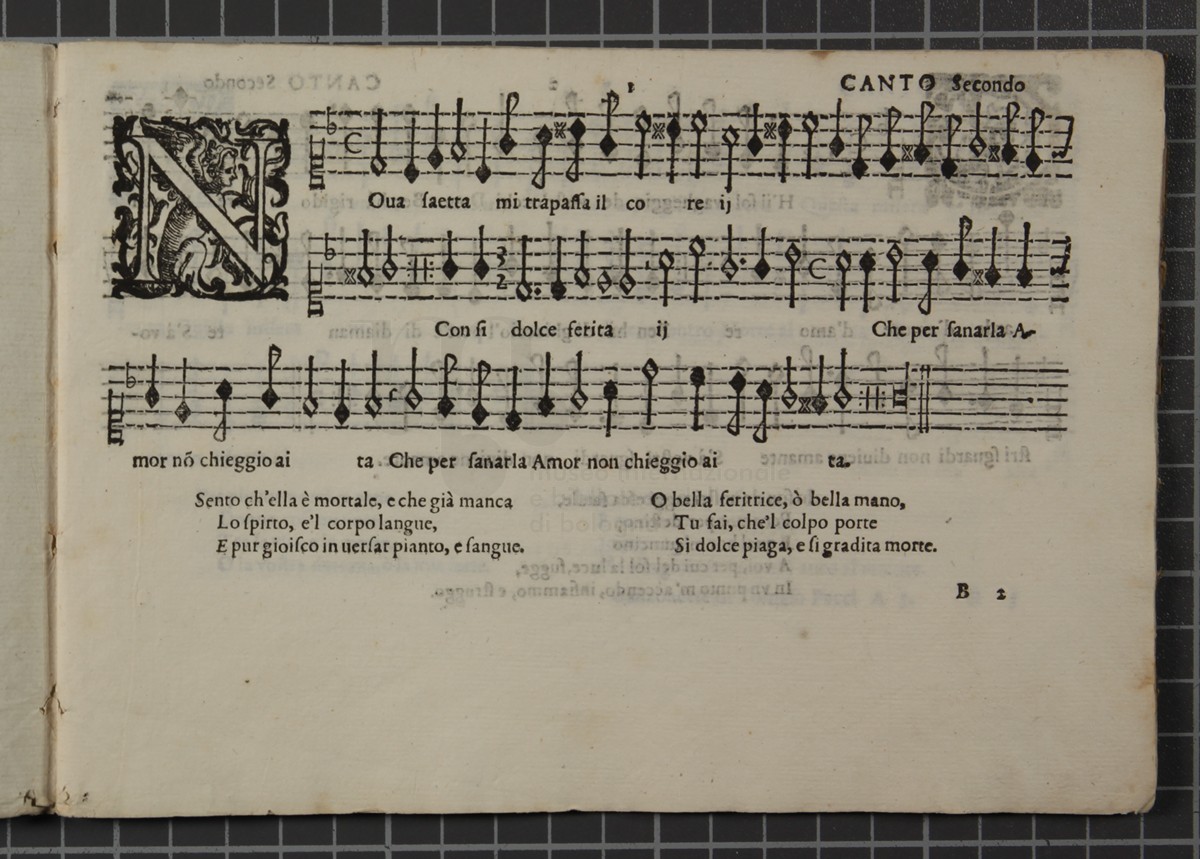 1
CANTO Secondo
NOua ſaetta mi trapaſſa il co re ij
Con ſi dolce ferita ij Che per ſanarla A-
mor nõ chieggio ai ta Che per ſanarla Amor non chieggio ai ta.
Sento ch'ella è mortale, e che già manca
Lo ſpirto, e'l corpo langue,
E pur gioiſco in uerſar pianto, e ſangue.
O bella feritrice, ò bella mano,
Tu fai, che'l colpo porte
Si dolce piaga, e ſi gradita morte.
B 2